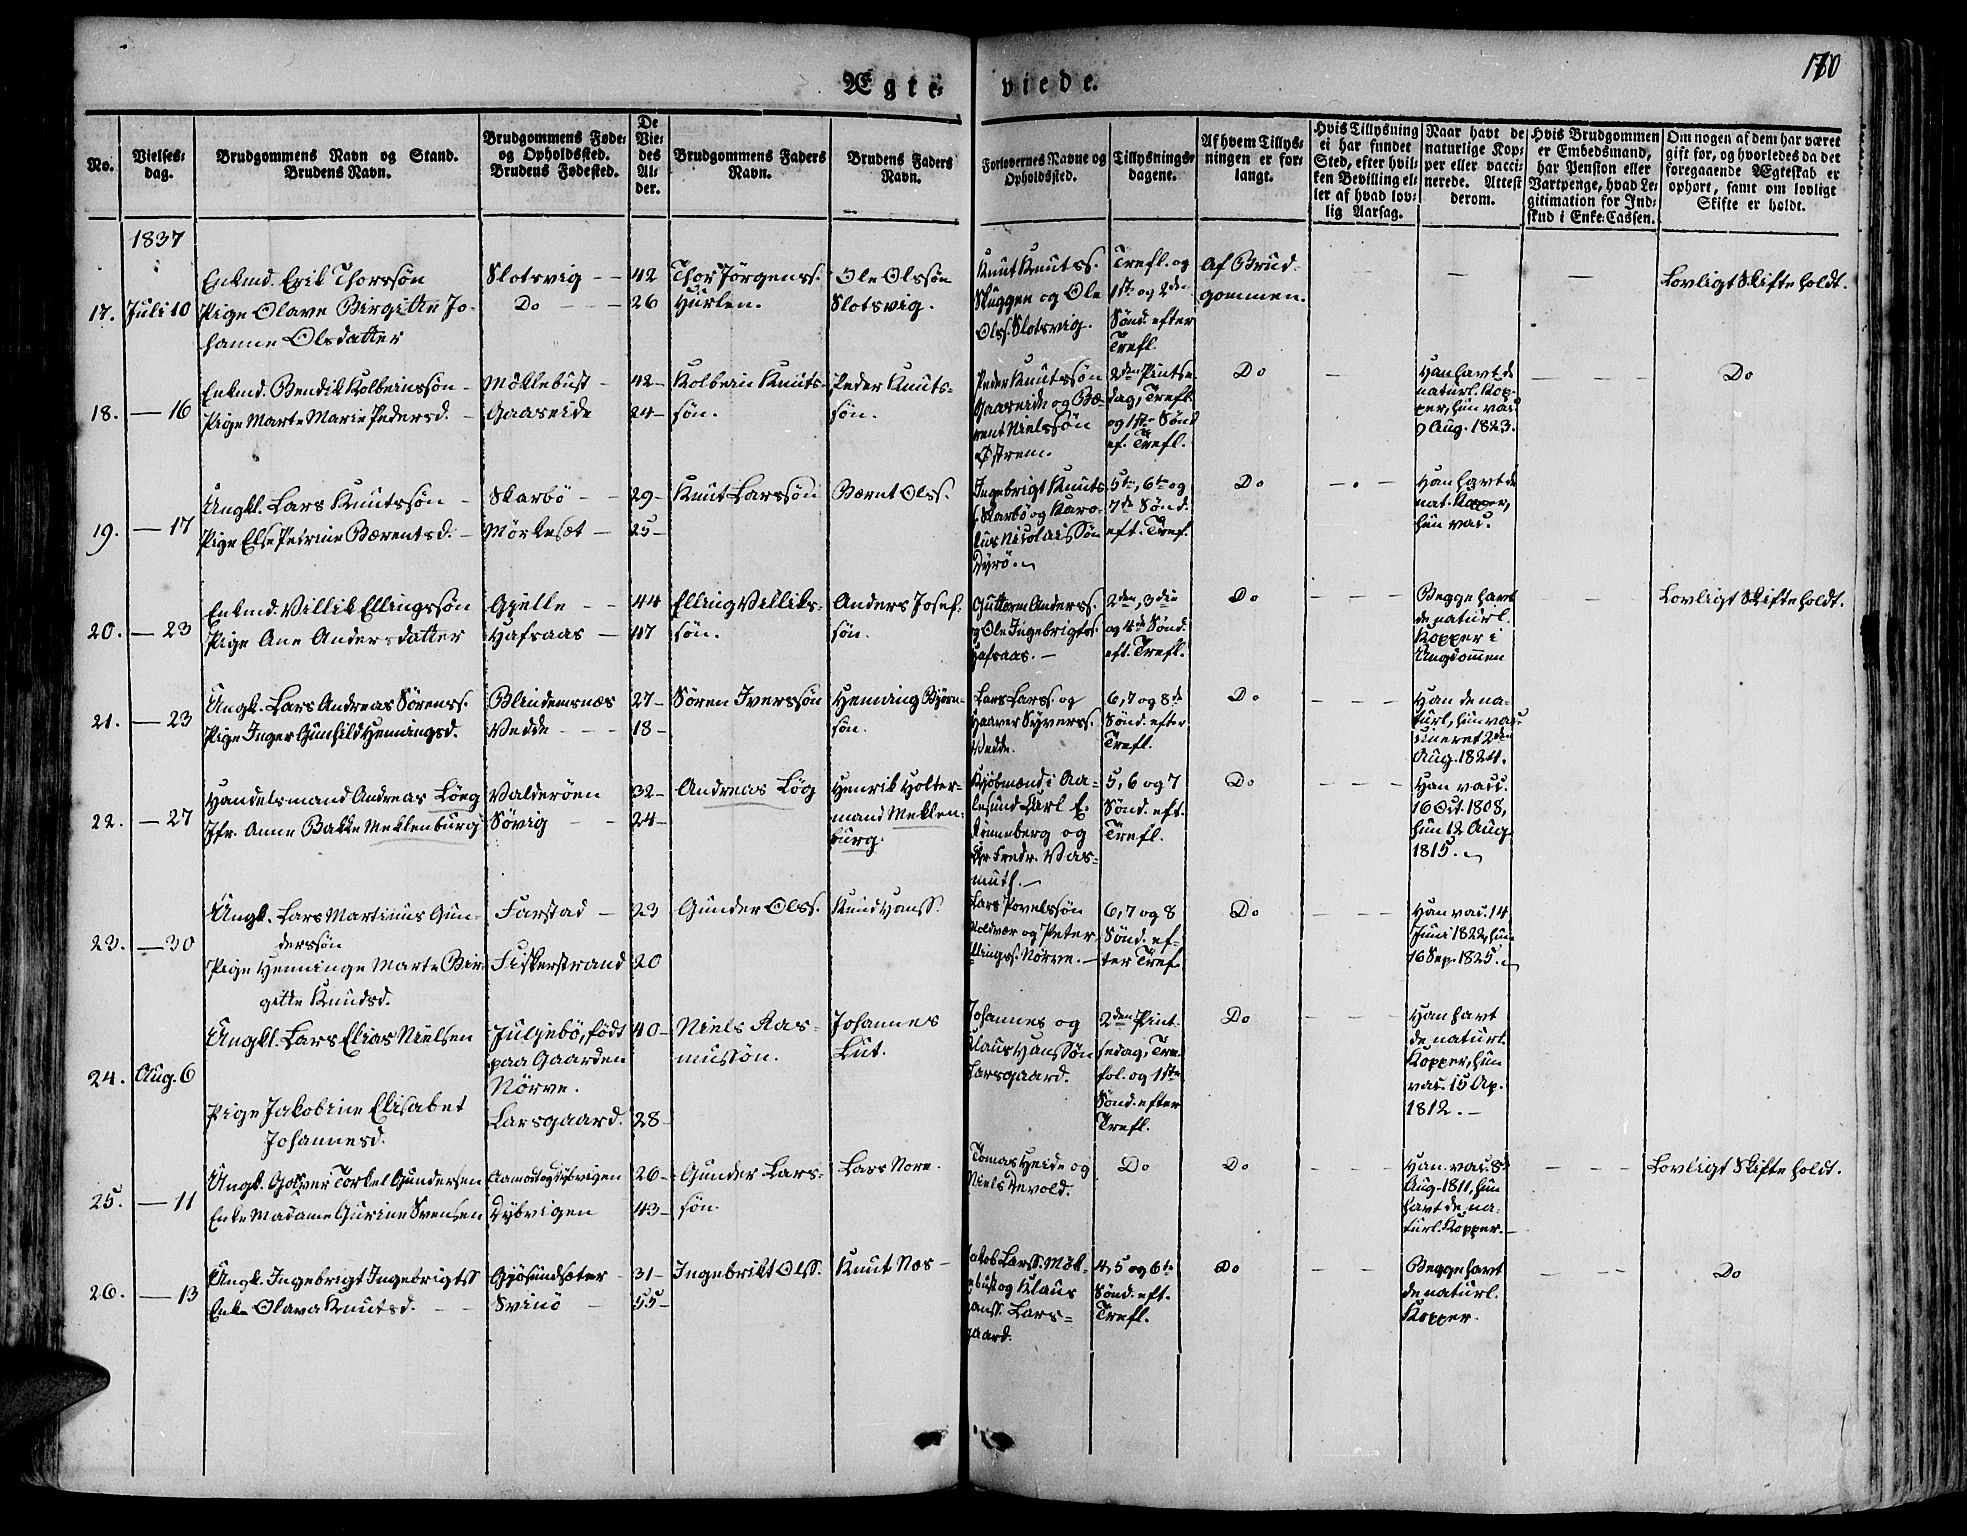 170
Ægte- viede.
No.
Vielses-
dag.
Brudgommens Navn og Stand.
Brudens Navn.
Brudgommens Føde-
og Opholdssted.
Brudens Fødested.
De
Vie-
des
Al-
der.
Brudgommens Faders
Navn.
Brudens Faders
Navn.
Forlovernes Navne og
Opholdssted.
Tillysnings-
dagene.
Af hvem Tillys-
ningen er for-
langt.
Hvis Tillysning
ei har fundet
Sted, efter hvil-
ken Bevilling el-
ler af hvad lov-
lig Aarsag.
Naar havt de
naturlige Kop-
per eller vacci-
nerede. Attest
derom.
Hvis Brudgommen
er Embedsmand,
har Pension eller
Vartpenge, hvad Le-
gitimation for Ind-
skud i Enke-Cassen.
Om nogen af dem har været
gift før, og hvorledes da det
foregaaende Ægteskab er
ophørt, samt om lovligt
Skifte er holdt.
1837
17. Juli 10
Enkmd. Erik Thorssøn
Pige Olave Birgitte Jo-
hanne Olsdatter
Slotsvig
Do
42
26
Thor Jørgenss.
Hurlen.
Ole Olssøn
Slotsvig.
Knut Knutss.
Skuggen og Ole
Olss. Slotsvig.
Trefl. og
1ste og 2den
Sønd. efter
Trefl.
Af Brud-
gommen.
Lovligt Skifte holdt.
18. — 16
Enkmd. Bendik Kolbeinssøn
Pige Marte Marie Pedersd.
Møklebust
Gaaseide
42
24
Kolbein Knuts-
søn.
Peder Knuts-
søn.
Peder Knutssøn
Gaaseide og Bæ-
rent Nielssøn
Østrem.
2den Pintse
dag, Trefl.
og 1ste Sønd
ef. Trefl.
Do
Han havt de
naturl. Kop-
per, hun vac.
9 Aug. 1823.
Do
19. — 17
Ungkl. Lars Knutssøn
Pige Else Petrine Bærentsd.
Skarbø
Mørkesæt
29
25
Knut Larssøn
Bærnt Olss.
Ingebrigt Knuts
s. Skarbø og Karo-
lus Nicolaissøn
Dyrø.
5te, 6te og
7de Sønd.
eft. Tref.
Do
Han havt de
nat. Kopper,
hun vac.
20. — 23
Enkmd. Villik Ellingssøn
Pige Ane Andersdatter
Gjelle
Hafsaas
44
47
Elling Villiks-
søn.
Anders Josef-
søn.
Guttorm Anderss.
og Ole Ingebrigtss.
Hafsaas.
2den, 3die
og 4de Sønd.
eft. Trefl.
Do
Begge havt
de naturl.
Kopper i
Ungdommen
Lovligt Skifte holdt.
21. — 23
Ungk. Lars Andreas Sørenss.
Pige Inger Gunhild Henningsd.
Blindemsnæs
Vedde
27
18
Søren Iverssøn
Henning Bjørn-
søn.
Lars Larss. og
Haaver Syverss.
Vedde.
6, 7 og 8de
Sønd. efter
Trefl.
Do
Han de na-
turl., hun vac-
cineret 2den
Aug. 1824.
22. — 27
Handelsmand Andreas Løeg
Jfr. Anne Bakke Meklenburg
Valderøen
Søvig
32
24
Andreas Løg
Henrik Holter-
mand Meklen-
burg.
Kjøbmænd i Aa-
lesund Carl E.
Rønneberg og
Chr Fredr. Vas-
muth.
5, 6 og 7
Sønd. eft.
Trefl.
Do
Han vacc.
16 Oct. 1808,
hun 12 Aug.
1815.
23. — 30
Ungk. Lars Martinus Gun-
derssøn
Pige Henninge Marte Bir-
gitte Knudsd.
Farstad
Fiskerstrand
23
20
Gunder Olss.
Knud Hanss.
Lars Povelssøn
Koldvær og Peter
Ellingss. Nørve.
6, 7 og 8
Sønd. ef-
ter Tref
Do
Han vac. 14
Juni 1822, hun
16 Sep. 1825.
24. Aug. 6
Ungkl. Lars Elias Nielsen
Pige Jakobine Elisabet
Johannesd.
Julsebø, født
paa Gaarden
Nørve.
Larsgaard.
40
28
Niels Ras-
mussøn.
Johannes
Lut.
Johannes og
Klaus Hanssøn
Larsgaard.
2den Pint-
sedag, Tre-
fol. og 1ste
Sønd. efter
Trefl.
Do
Han havt
de naturl.
Kopper, hun
vac. 15 Ap.
1812.
25. — 11
Ungk. Golver Torkel Gundersen
Enke Madame Gurine Svensen
Aamot og Dybvigen
Dybvigen
26
43
Gunder Lars-
søn.
Lars Nore.
Tomas Heide og
Niels Devold.
Do
Do
Han vac. 8de
Aug. 1811, hun
havt de na-
turl. Kopper.
Lovligt Skifte holdt.
26. — 13
Ungk. Ingebrigt Ingebrigtss
Enke Olava Knutsd.
Gjøsundsæter
Svinø
31
55
Ingebrikt Olss.
Knut Nos
Jakob Larss. Møk-
lebust og Klaus
Hanss. Lars-
gaard.
4, 5 og 6te
Sønd. eft.
Trefl.
Do
Begge havt
de naturl.
Kopper.
Do